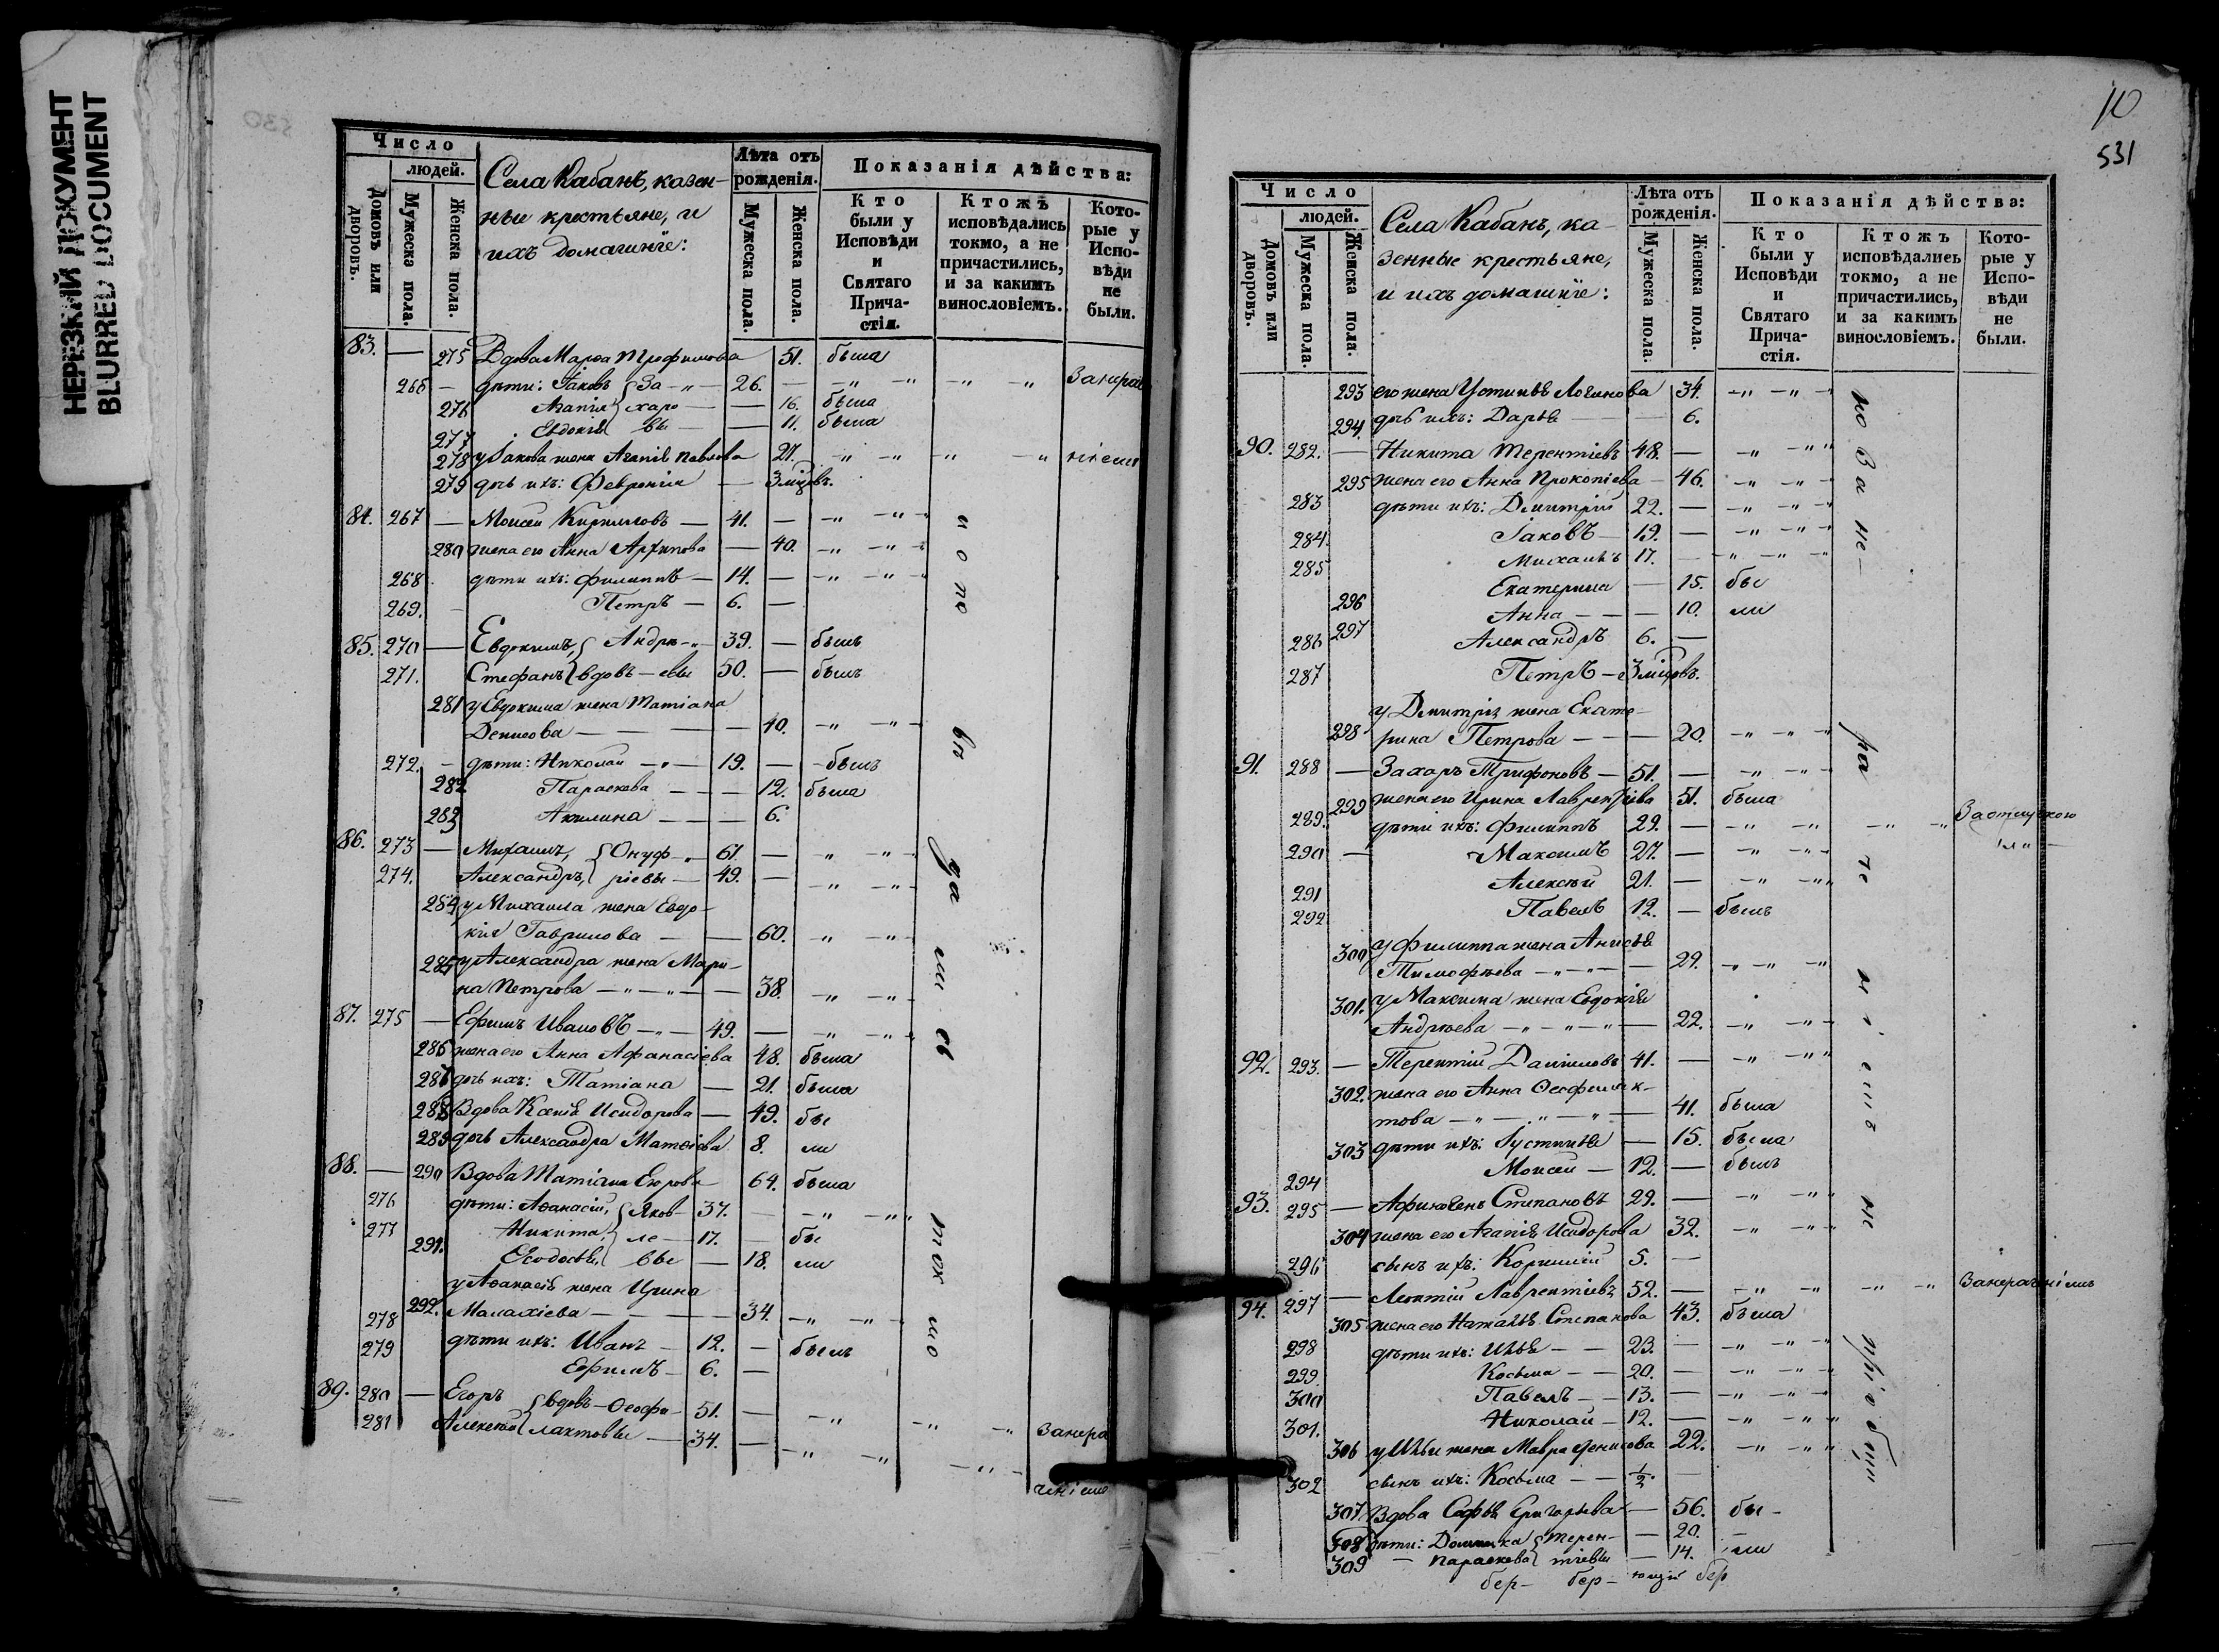 НЕРЕЗКИЙ ДОКУМЕНТ
BLURRED DOCUMENT
530
Число
людей.
Домовъ или дворовъ.
Мужеска пола.
Женска пола.
Села Кабанъ, казен-
ные крестьяне, и
ихъ домашніе:
Лѣта отъ рожденія.
Мужеска пола.
Женска пола.
Показанія дѣйства:
Кто были у Исповѣди и Святаго Прича- стія.
Ктожъ исповѣдались токмо, а не причастились, и за какимъ винословіемъ.
Кото- рые у Испо- вѣди не были.
83. — 275 Вдова Марѳа Трофимова 51. была
266 — дѣти: Іаковъ { За -„- 26. — -„ -„ -„ -„ Занерач
276 Агапія { харо — — 16. была
277 Евдокія { вы — — 11. была
278 у Іакова жена Агапія Павлова 27. -„ -„ -„ -„ ніемъ
279 дочь ихъ: Февронія — 3 мцвъ.
84. 267 — Моисей Кирилловъ — 41. — -„ -„-
280 жена его Анна Архипова — 40. -„ -„-
268 дѣти ихъ: Филиппъ — 14. — -„ -„-
269. Петръ — 6. —
85. 270 — Евдокимъ, { Андре-„- 39. — былъ
271. Стефанъ { вдовъ — евы 50. — былъ
281 у Евдокима жена Татіана
Денисова — — — — 40. -„ -„-
272. — дѣти: Николай -„- 19. — былъ
282 Параскева — — — 12. была
283 Акилина — — — 6.
86. 273 — Михаилъ, { Онуф-„ 61. — „ -„-
274. Александръ, { ріевы — 49. — -„ -„-
284 у Михаила жена Евдо-
кія Гаврилова — — 60. „ -„-
285 у Александра жена Мари-
на Петрова -„-„- — 38. -„ -„-
87. 275 — Ефимъ Ивановъ -„- 49. — -„ -„-
286 жена его Анна Афанасіева 48. была
287 дочь ихъ: Татіана — 21. была
288 Вдова Ксенія Исидорова — 49. бы
289 дочь Александра Матѳіева 8. ли
88. — 290 Вдова Татіана Егорова 64. была
276 дѣти: Аѳанасій, { Яков- 37. — -„ -„„
277 Никита, { ле — 17. — бы
291. Ѳеодосія, { вы — 18. ли
у Аѳанасія жена Ирина
292. Малахіева — — — 34. -„ -„-
278 дѣти ихъ: Иванъ — 12. — былъ
279 Ефимъ — 6. —
89. 280 — Егоръ { вдовъ — Ѳеофи- 51. — -„ -„ -„ Занера
281 Алексѣй { лактовы — 34. — -„ -„ -„- ченіемъ
исповѣдались токмо
10
531
Число
людей.
Домовъ или дворовъ.
Мужеска пола.
Женска пола.
Села Кабанъ, ка-
зенные крестьяне,
и ихъ домашніе:
Лѣта отъ рожденія.
Мужеска пола.
Женска пола.
Показанія дѣйства:
Кто были у Исповѣди и Святаго Прича- стія.
Ктожъ исповѣдались токмо, а не причастились, и за какимъ винословіемъ.
Кото- рые у Испо- вѣди не были.
293 его жена Устинія Логинова 34. -„ -„-
294. дочь ихъ: Дарья — 6.
90. 282. — Никита Терентіевъ 48. — -„ -„„
295 жена его Анна Прокопіева — 46. -„ -„-
283 дѣти ихъ: Дмитрій 22. — -„ -„-
284. Іаковъ — 19. — -„ -„-
285 Михаилъ 17. — -„ -„-
296 Екатерина — 15. бы
297 Анна — — 10. ли
286 Александръ 6. —
287 Петръ — 3 мцовъ.
у Дмитрія жена Екате-
298 рина Петрова — — 20. -„ -„-
91. 288 — Захаръ Трифоновъ — 51. — -„ -„-
299 жена его Ирина Лаврентіева 51. была
289. дѣти ихъ: Филиппъ 29. — -„ -„ -„ -„ За отлучкою
290 — Максимъ 27. — -„ -„-
291 Алексѣй 21. — -„ -„„
292 Павелъ 12. — былъ
300 у Филиппа жена Анисія
Тимофѣева -„-„- 29. -„ -„ -„
301. у Максима жена Евдокія
Андреева -„-„-„- 22. -„ -„-
92. 293. — Терентій Даниловъ 41. — -„ -„„
302. жена его Анна Ѳеофилак-
това -„-„-„- 41. была
303 дѣти ихъ: Іустинія — 15. была
294 Моисей — 12. — былъ
93. 295 — Афиногенъ Степановъ 29. — -„ -„„
304 жена его Агапія Исидорова 32. -„ -„-
296 сынъ ихъ: Корнилій 5. —
94. 297 — Леонтій Лаврентіевъ 52. — -„ -„ -„ -„ Занераченіемъ
305 жена его Наталія Степанова 43. была
298 дѣти ихъ: Илья — — 23. — -„ -„„
299 Косьма — — 20. — -„ -„-
300 Павелъ — — 13. — -„ -„-
301. Николай — 12. — -„ -„„
306 у Ильи жена Мавра Денисова 22. -„ -„„
302 сынъ ихъ: Косьма — — ½ —
307 Вдова Софія Григорьева — 56. бы-
308 дѣти: Домника { Терен- — 20. —
309 — Параскева { тіевы — 14. ли